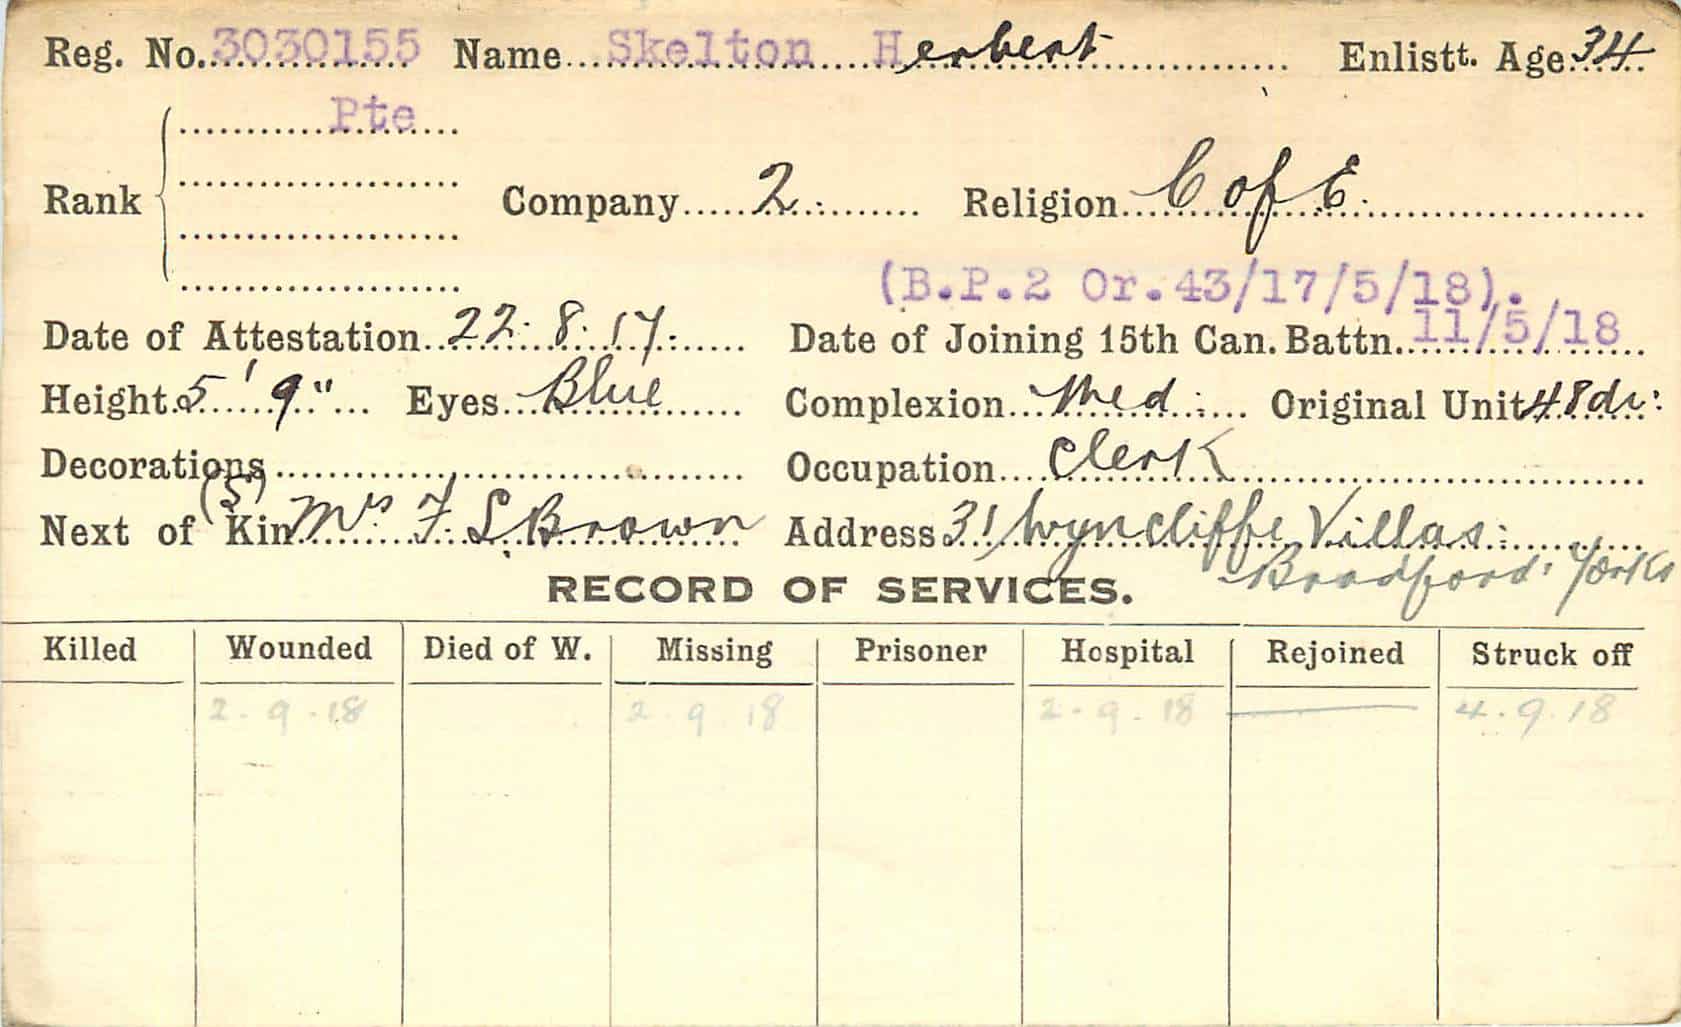 Reg. No. 3030155 Name Skelton Herbert Enlistt. Age 34
Pte
Rank Company 2 Religion C of E.
(B.P.2 Or.43/17/5/18).
Date of Attestation 22.8.17. Date of Joining 15th Can. Battn. 11/5/18
Height 5' 9" Eyes Blue Complexion Med. Original Unit 48dr.
Decorations Occupation Clerk
(S)
Next of Kin Mrs F. L. Brown Address 31 Wyncliffe Villas.
Bradford. Yorks
RECORD OF SERVICES.
Killed Wounded Died of W. Missing Prisoner Hospital Rejoined Struck off
2.9.18 2 9 18 2.9.18 4.9.18